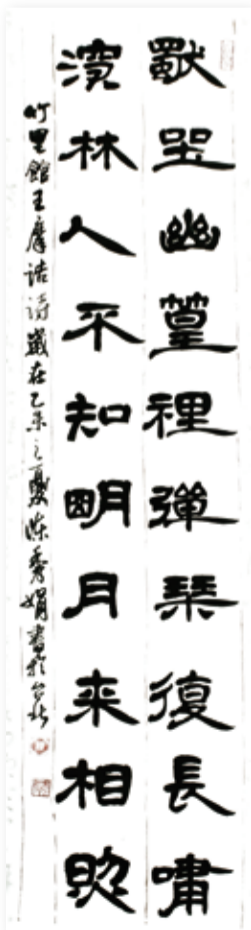 獨坐幽篁裡彈琴復長嘯
深林人不知明月来相照
竹里館王摩詰詩歲在乙未之夏陳秀娟書於台北